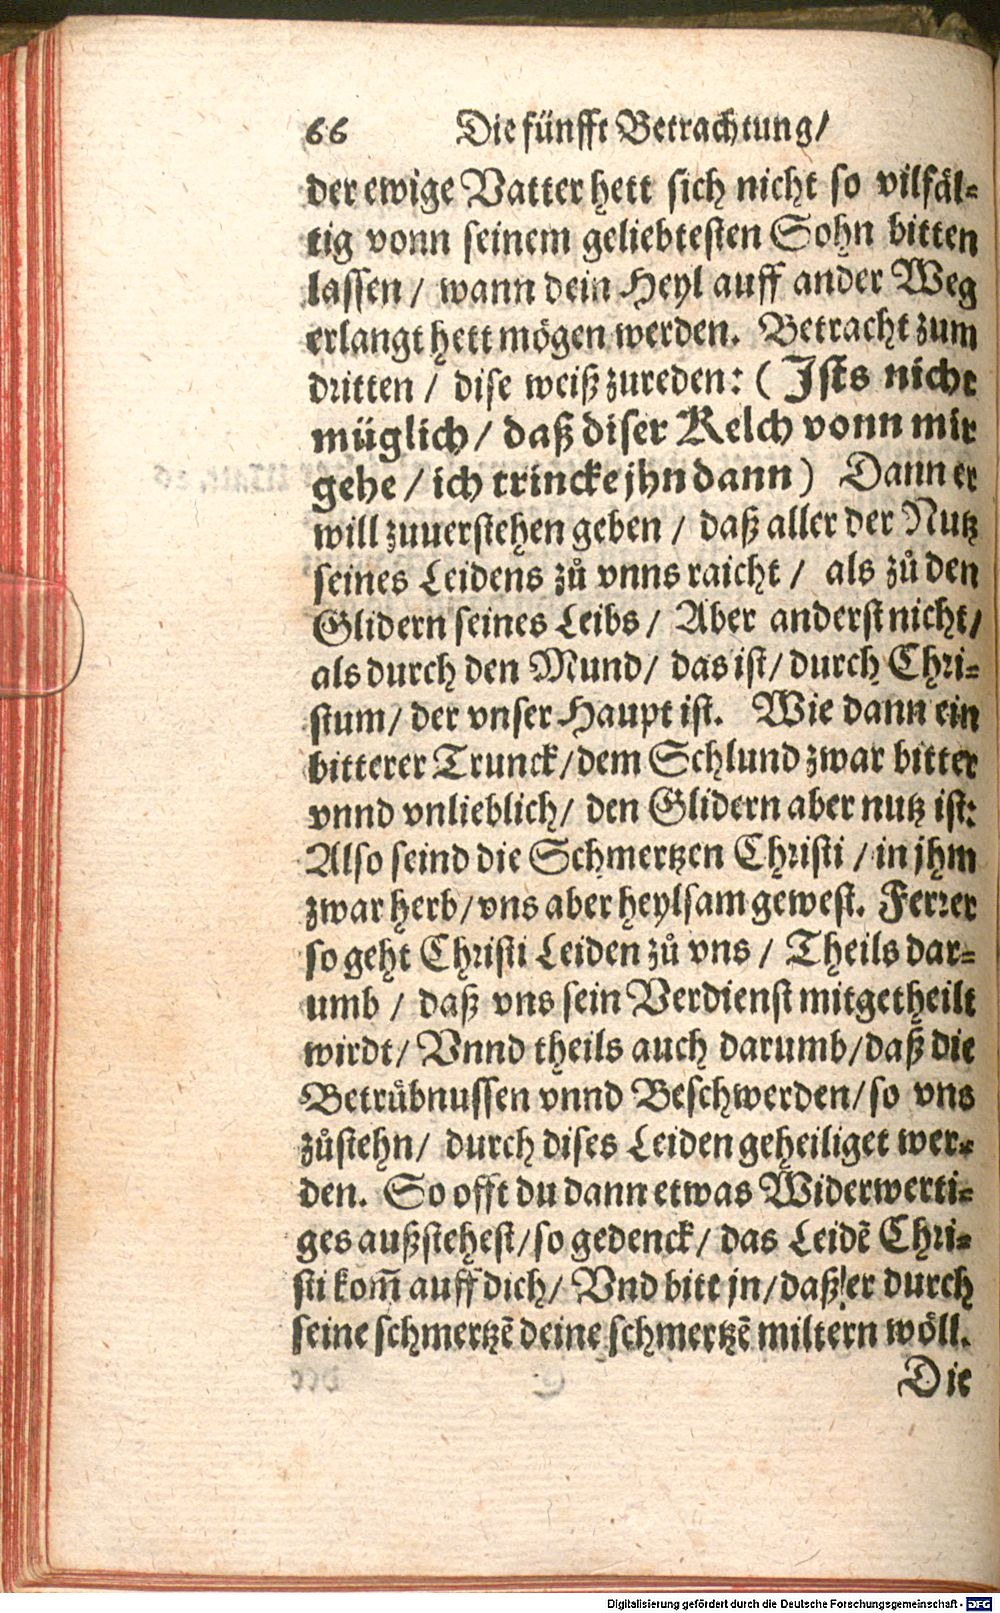 66 Die fünfft Betrachtung/
der ewige Vatter hett sich nicht so vilfäl-
tig vonn seinem geliebtesten Sohn bitten
lassen / wann dein Heyl auff ander Weg
erlangt hett mögen werden. Betracht zum
dritten / dise weiß zureden: (Ists nicht
müglich/ daß diser Kelch vonn mir
gehe / ich trincke jhn dann) Dann er
will zuuerstehen geben / daß aller der Nutz
seines Leidens zů vnns raicht / als zů den
Glidern seines Leibs/ Aber anderst nicht/
als durch den Mund/ das ist/ durch Chri-
stum/ der vnser Haupt ist. Wie dann ein
bitterer Trunck/dem Schlund zwar bitter
vnnd vnlieblich/ den Glidern aber nutz ist:
Also seind die Schmertzen Christi / in jhm
zwar herb/vns aber heylsam gewest. Ferrer
so geht Christi Leiden zů vns / Theils dar-
umb / daß vns sein Verdienst mitgetheilt
wirdt/ Vnnd theils auch darumb/daß die
Betrůbnussen vnnd Beschwerden/so vns
zůstehn/ durch dises Leiden geheiliget wer-
den. So offt du dann etwas Widerwerti-
ges außstehest/so gedenck/ das Leidẽ Chri-
sti kom̃ auff dich/ Vnd bitt jn/daß er durch
seine schmertzẽ deine schmertzẽ miltern wöll.
Die
Digitalisierung gefördert durch die Deutsche Forschungsgemeinschaft - DFG